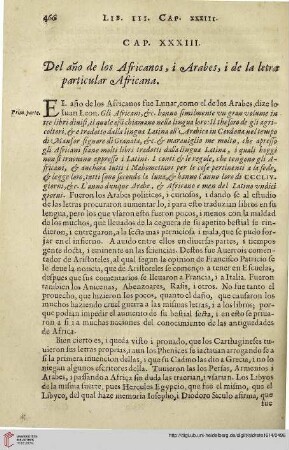 466 LIB. III. CAP. XXXIII.
CAP. XXXIII.
Del año de los Africanos, i Arabes, i de la letra
particular Africana.
Prim. parte.
EL año de los Africanos fue Lunar, como el de los Arabes, dize lo
Iuan Leon. Gli Africani, &c. hanno similmente vn gran volume in
tre libri diuiso, il quale essi chiamano nella lingua
coltori, & e tradotto dalla lingua Latina in Cordoua nel tempo
di Mansor signore di Granata, &c.
gli Africani libri tradotti dalla lingua Latina, i quali hoggi
non si trouano appresso i Latini. I conti & le regole, che tengono gli A-
fricani, & ancora tutti i Mahomettani per le cose pertinenti a la fede,
& legge loro, tutte sono secondo la luna, & hanno l'anno loro de CCCLIV.
giorni, &c. L'anno dunque Arabo, & Africano e men del Latino vndici
giorni. Fueron los Arabes politicos, i curiosos, i dando se al estudio
de las letras procuraron aumentar lo, i para esto traduzian libros en su
lengua, pero los que vieron esto fueron pocos, i menos con la maldad
de los muchos, que lleuados de la ceguera de su apetito bestial se rin-
dieron, i entregaron, a la secta mas perniciosa, i mas suzia, que se pudo for-
jar en el infierno. A auido entre ellos en diuersas partes, i tiempos
gente docta, i eminente en las sciencias. Destos fue Auerroes comen-
tador de Aristoteles, al qual segun la opinion de Francisco Patricio se
le deue la noticia, que de Aristoteles se començo a tener en Escuelas,
despues que sus comentarios se lleuaron a Francia, i a Italia. Fueron
tambien los Auicenas, Abenzoares, Rasis, i otros. No fue tanto el
prouecho, que hizieron los pocos, quanto el daño, que causaron los
muchos haziendo cruel guerra a las mismas letras, i a los libros, por-
que podian estoruar el aumento de su bestial secta, i en esto se priua-
ron a si i a muchas naciones del conocimiento de las antiguedades
de Africa.
Bien cierto es, i queda visto i prouado, que los Carthagineses tu-
uieron sus letras proprias, i aun los Phenices se jactauan arrogando se a
si la primera inuencion dellas, i que su Cadmo las dio a Grecia, i no lo
niegan algunos escritores della. Tuuieron las los Persas, Armenios i
Arabes, i passando a Africa sin duda las traerian, i vsarian. Los Libyos
de la misma suerte, pues Hercules Egypcio, que fue el mismo, que
el Libyco, del qual haze memoria Iosepho, i Diodoro Siculo afirma, que
UNIVERSITÄTS-BIBLIOTHEK HEIDELBERG